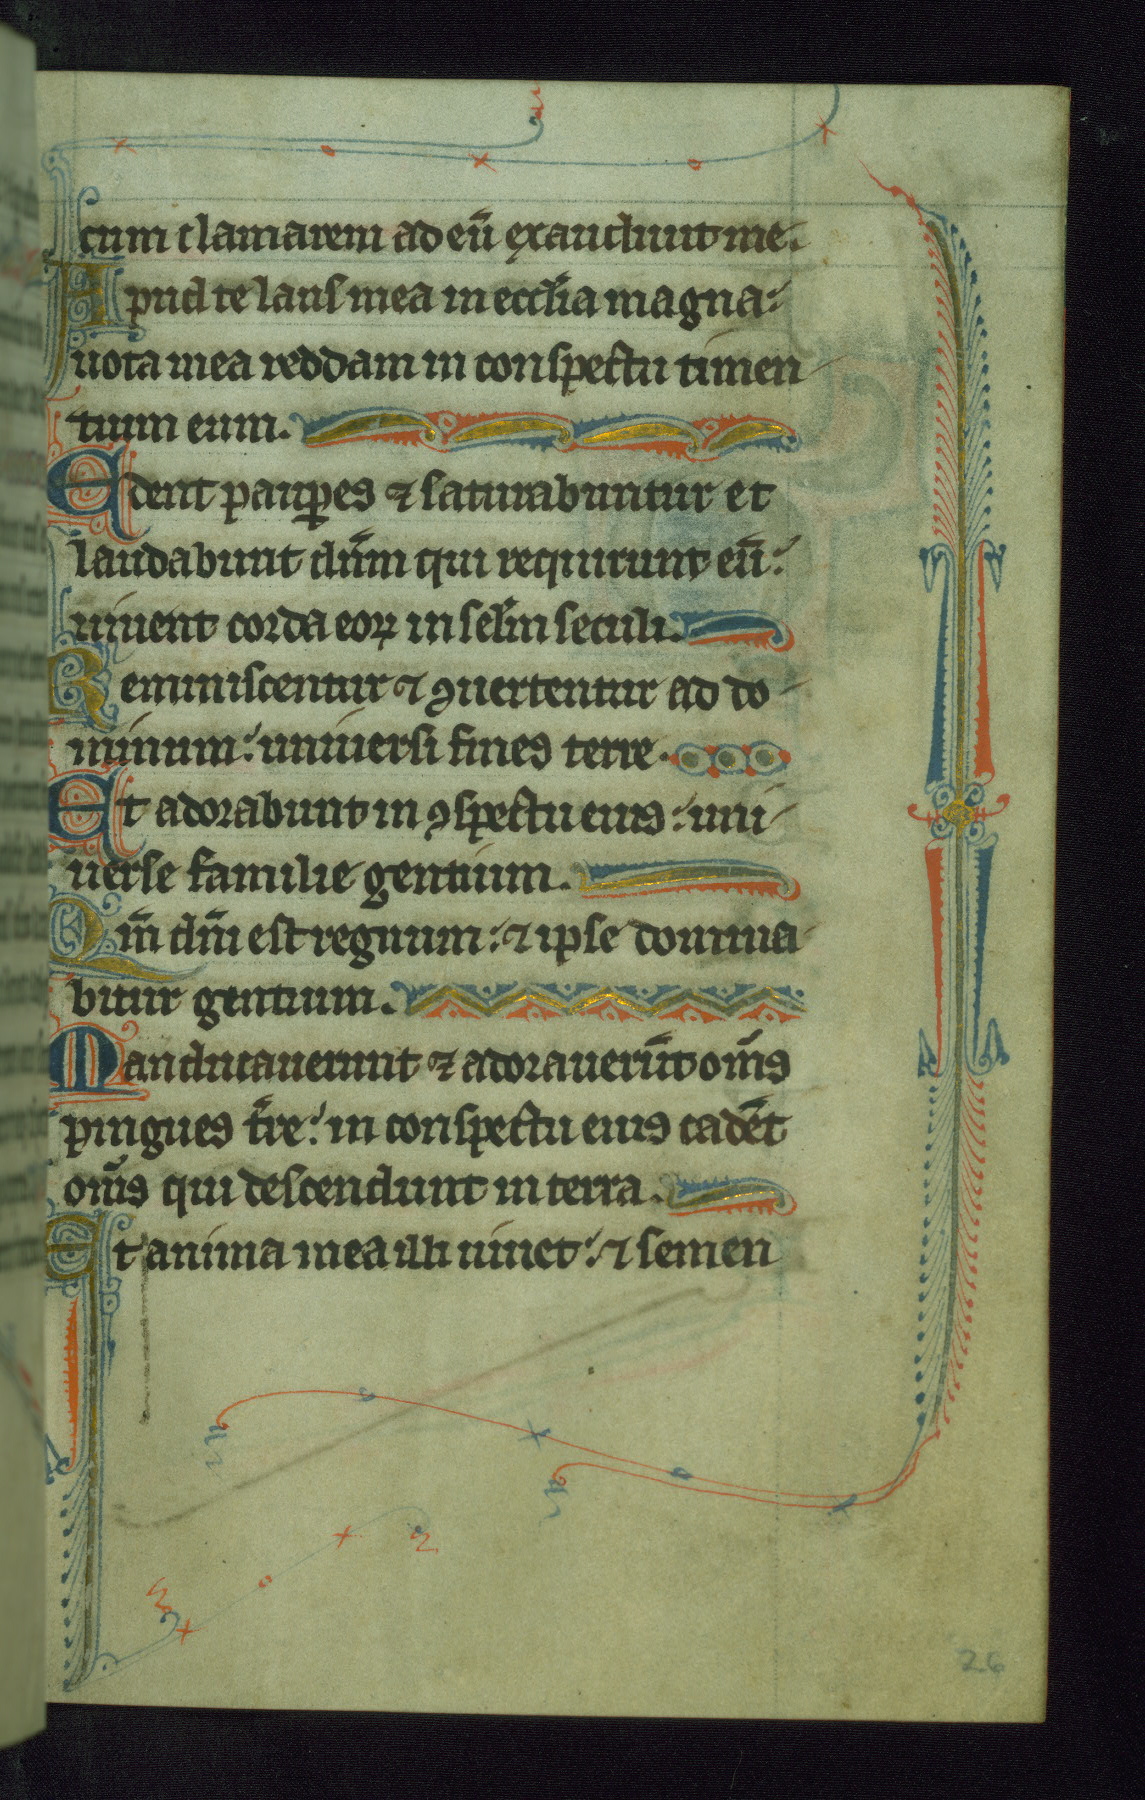 cum clamarem ad eū exaudiuit me.
Apud te laus mea in eccl̄ia magna:
uota mea reddam in conspectu timen
tium eum.
Edent paup̄es ⁊ saturabuntur et
laudabunt dn̄m qui requirunt eū:
uiuent corda eoꝝ in sel̄m seculi.
Reminiscentur ⁊ ꝯuertentur ad do
minum: uniuersi fines terre.
Et adorabunt in ꝯspectu eius: uni
uerse familie gentium.
Qm̄ dn̄i est regnum: ⁊ ipse domina
bitur gentium.
Manducauerunt ⁊ adorauerūt om̄s
pingues t̄re: in conspectu eius cadēt
om̄s qui descendunt in terra.
Et anima mea illi uiuet: ⁊ semen
26